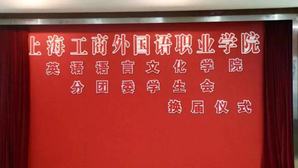 上海工商外国语职业学院
英语语言文化学院
分团委学生会
换届仪式